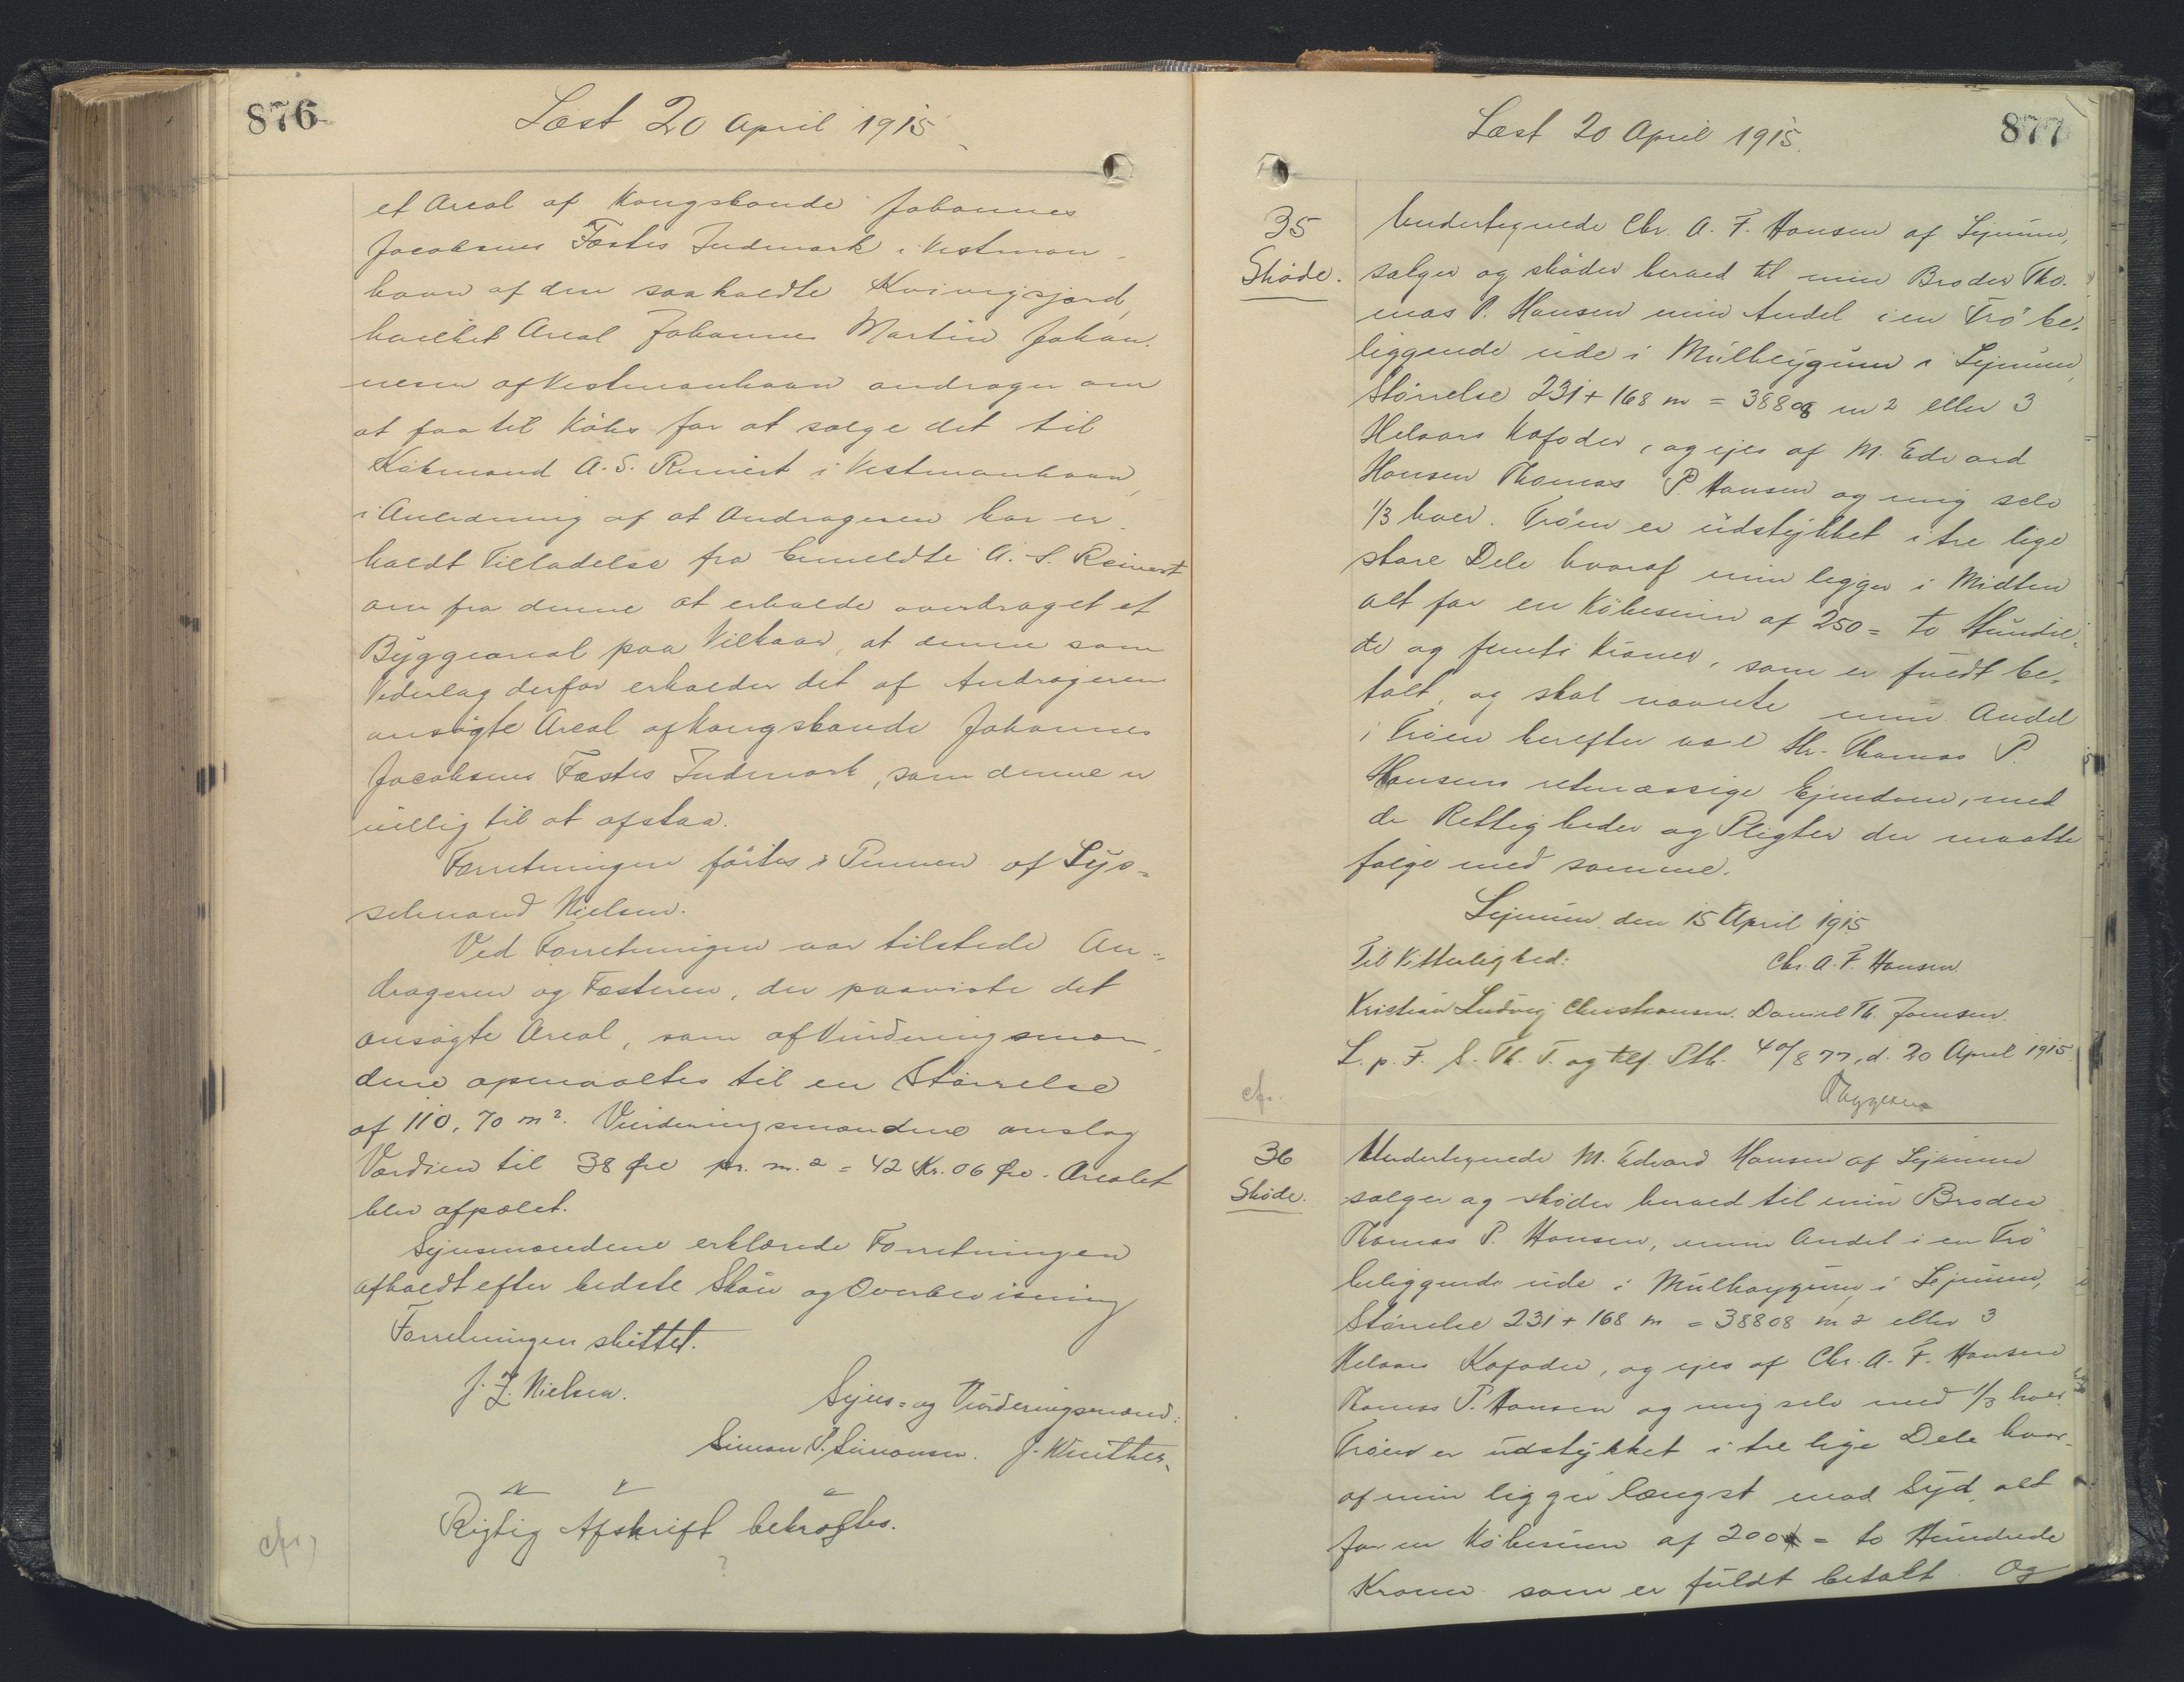 876
Læst 20 April 1915
et Areal af Kongsbonde Johannes
Jacobsens Fæstes Indmark i Vestman-
havn af den saakaldte Kvivigsjord,
hvilket Areal Johannes Martin Johan-
nesen af Vestmanhavn andrager om
at faa til Købs for at sælge det til
Købmand A. S. Reinert i Vestmanhavn,
i Anledning af at Andrageren har er-
holdt Tilladelse fra bemeldte A. S. Reinert
om fra denne at erholde overdraget et
Byggeareal paa Vilkaar, at denne som
Vederlag derfor erholder det af Andrageren
ansøgte Areal af Kongsbonde Johannes
Jacobsens Fæstes Indmark, som denne er
villig til at afstaa.
Forretningen førtes i Pennen af Sys-
selmand Nielsen.
Ved Forretningen var tilstede An-
drageren og Fæsteren, der paaviste det
ansøgte Areal, som af Vurderingsmæn-
dene opmaaltes til en Størrelse
af 110,70 m². Vurderingsmændene anslog
Værdien til 38 Øre pr. m. 2 = 42 Kr. 06 Øre. Arealet
blev afpælet.
Synsmændene erklærede Forretningen
afholdt efter bedste Skøn og Overbevisning
Forretningen sluttet.
J. Z. Nielsen.
Syns- og Vurderingsmænd:
Simon P. Simonsen. J. Winther.
Rigtig Afskrift bekræftes.
cfr.
877
Læst 20 April 1915.
35
Skøde.
Undertegnede Chr. A. F. Hansen af Lejnum,
sælger og skøder herved til min Broder Tho-
mas P. Hansen min Andel i en Trø be-
liggende ude i Mülheygum i Lejnum,
Størrelse 231 + 168 m = 38808 m 2 eller 3
Helaars Kofoder, og ejes af M. Edvard
Hansen Thomas P Hansen og mig selv
1/3 hver. Trøen er udstykket i tre lige
store Dele hvoraf min ligger i Midten
alt for en Købesum af 250 = to Hundre-
de og femti Kroner, som er fuldt be-
talt, og skal nævnte min Andel
i Trøen herefter være Hr. Thomas P.
Hansens retmæssige Ejendom, med
de Rettigheder og Pligter der maatte
følge med samme.
Lejnum den 15 April 1915
Til Vitterlighed: Chr. A. F. Hansen.
Kristian Ludvig Christiansen. Daniel Th. Joensen.
L. p. F. S. Th. T. og tilf. Ptk. 40/877, d. 20 April 1915
cfr.
36
Skøde.
Undertegnede M. Edvard Hansen af Lejnum
sælger og skøder herved til min Broder
Thomas P. Hansen, min Andel i en Trø
beliggende ude i Mülhoygum i Lejnum,
Størrelse 231 + 168 m = 38808 m 2 eller 3
Helaars Kofoder, og ejes af Chr. A. F. Hansen
Thomas P. Hansen og mig selv med 1/3 hver.
Trøen er udstykket i tre lige Dele hvor-
af min ligger længst mod Syd, alt
for en Købesum af 200 = to Hundrede
Kroner som er fuldt betalt. Og